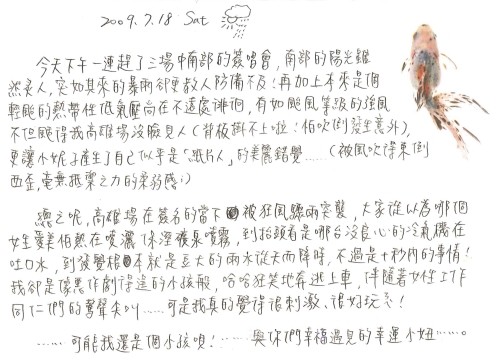 2009.7.18 Sat
今天下午一連趕了三場中南部的簽唱會，南部的陽光雖
然炙人，突如其來的暴雨卻更教人防備不及！再加上本來是個
輕颱的熱帶性低氣壓尚在不遠處徘徊，有如颱風等級的強風
不但颳得我高雄場沒臉見人（背板掛不上啦！怕吹倒發生意外），
更讓小妮子產生了自己似乎是「紙片人」的美麗錯覺……（被風吹得東倒
西歪，毫無抵禦之力的柔弱感；）
總之呢，高雄場在簽名的當下被狂風驟雨突襲，大家從以為哪個
女生愛美怕熱在噴灑保溼礦泉噴霧，到抬頭看是哪台沒良心的冷氣機在
吐口水，到發覺根本就是豆大的雨水從天而降時，不過是十秒內的事情！
我卻是像惡作劇得逞的小孩般，哈哈狂笑地奔逃上車，伴隨著女性工作
同仁們的驚聲尖叫……可是我真的覺得很刺激、很好玩ㄋㄟ！
……可能我還是個小孩唄！……與你們幸福遇見的幸運小妞……。